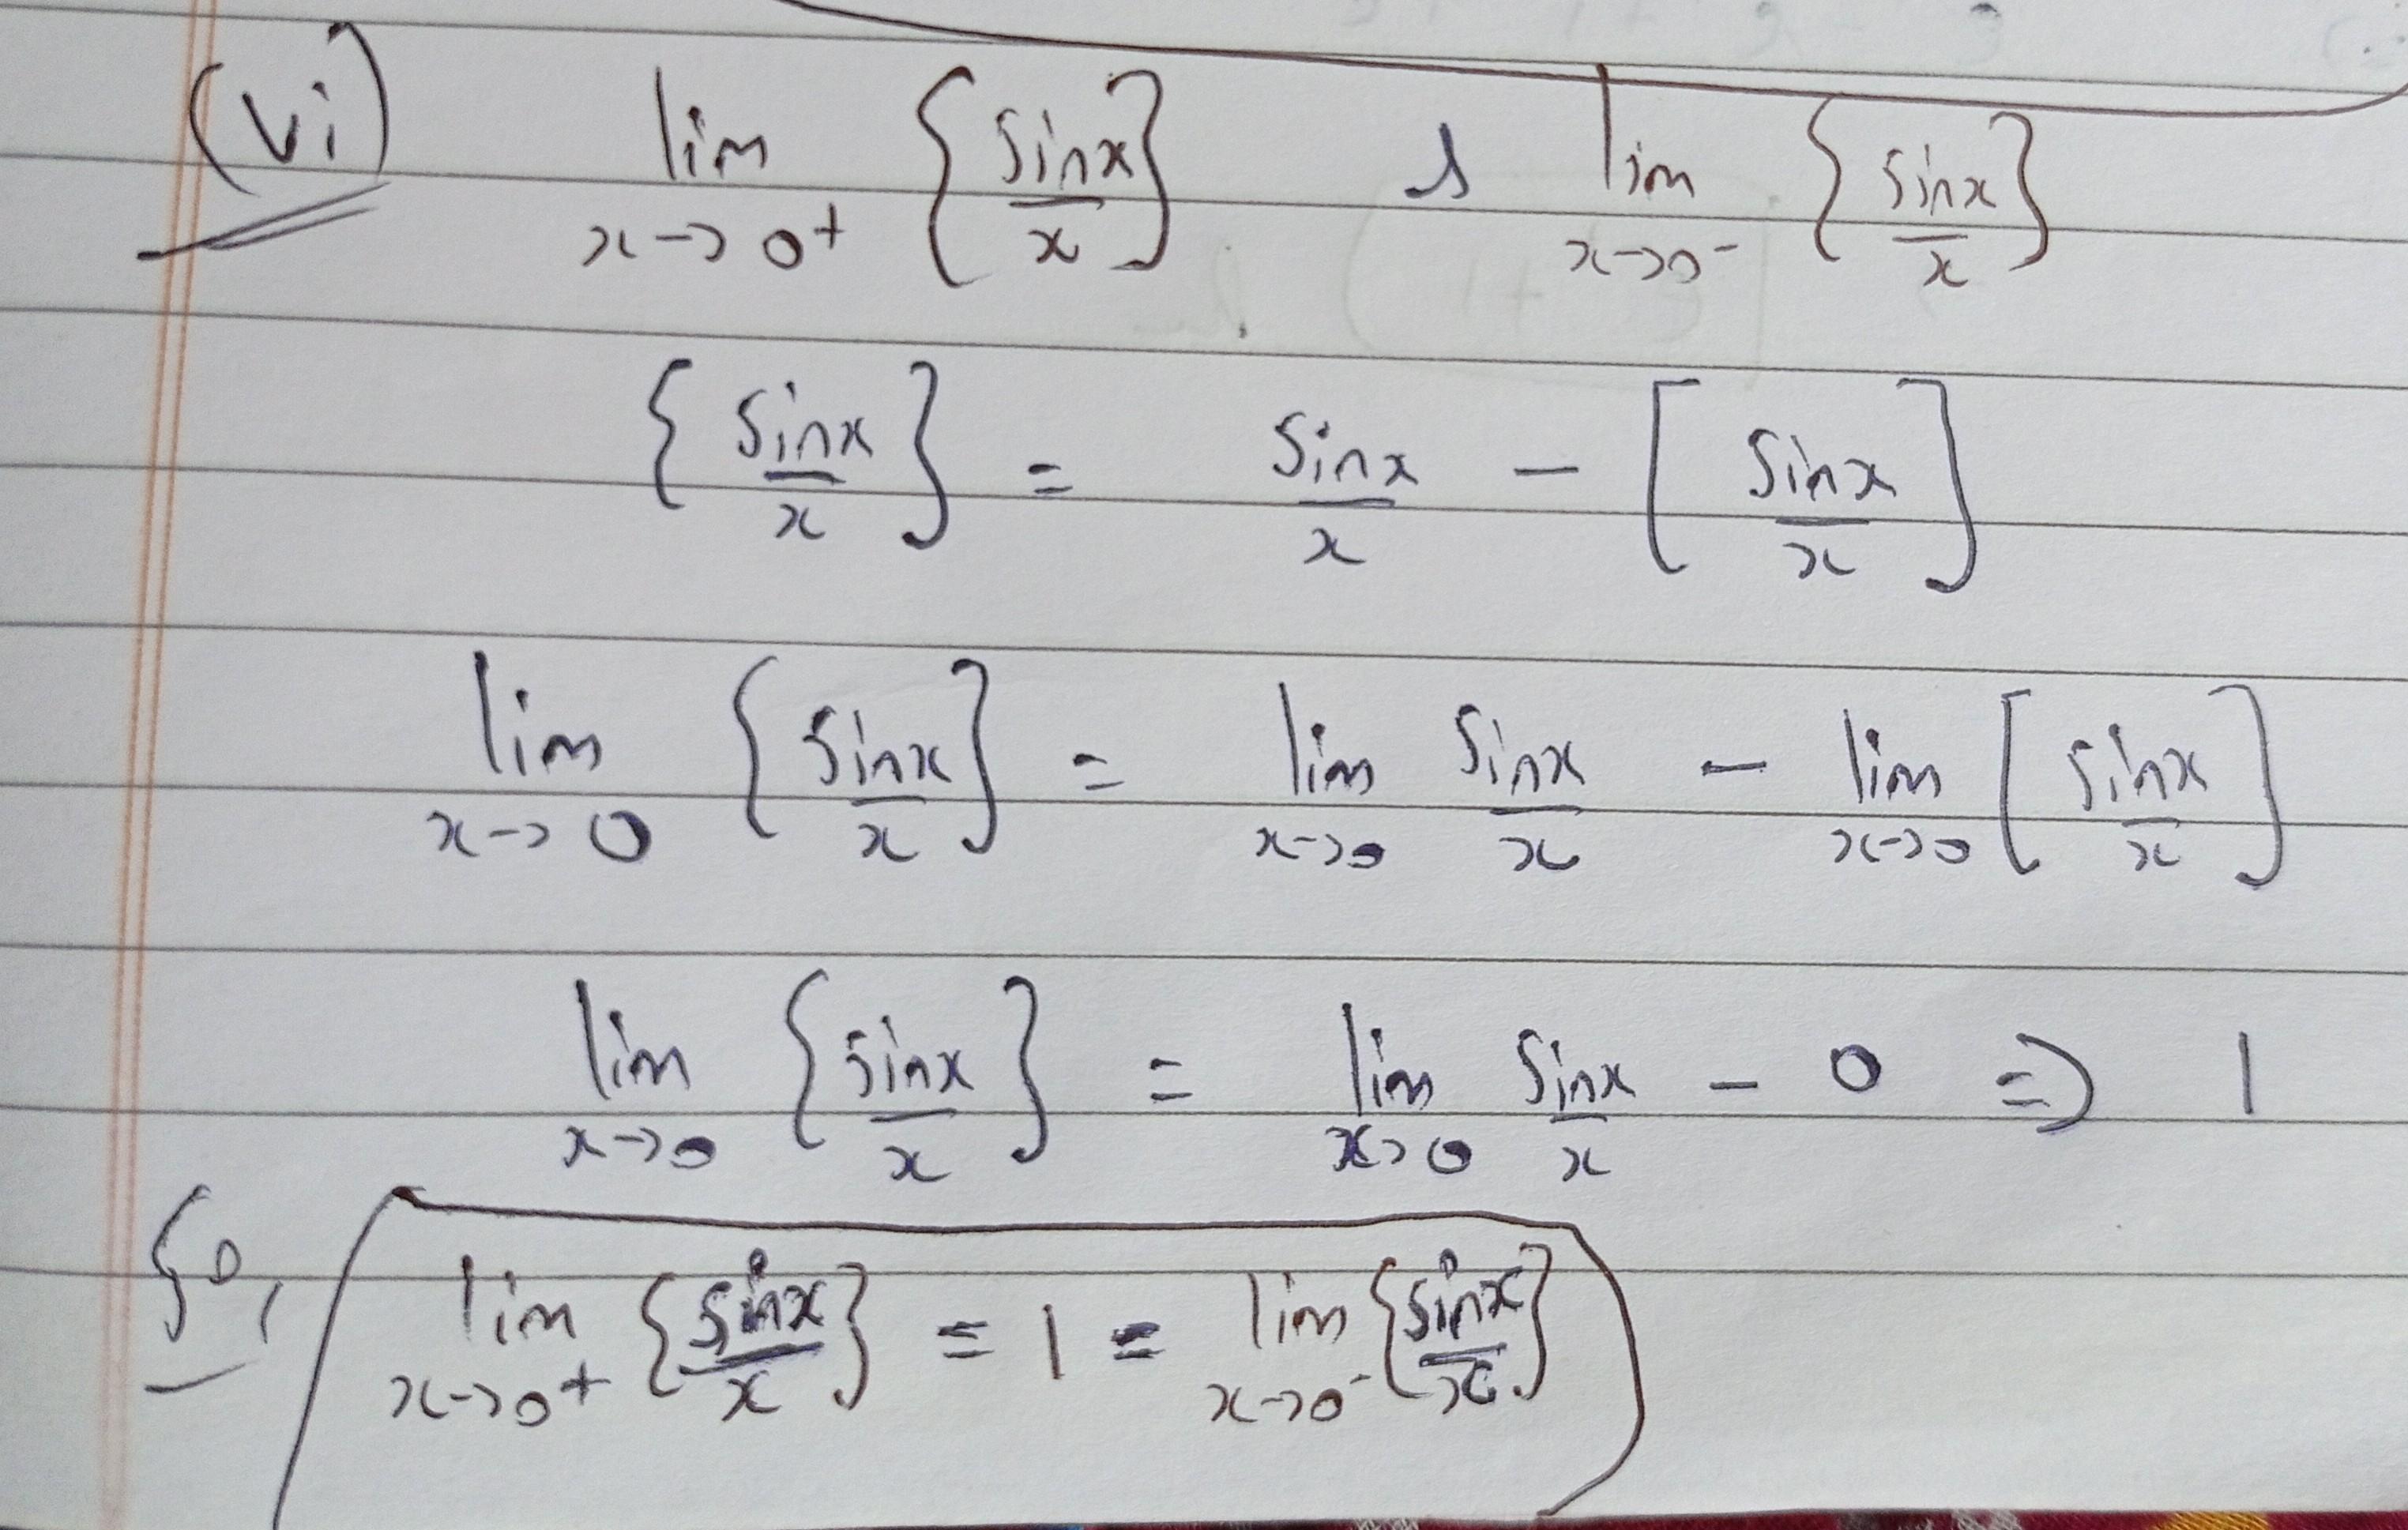 (vi) lim x→0+ {sinx/x} & lim x→0- {sinx/x}
{sinx/x} = sinx/x - [sinx/x]
lim x→0 {sinx/x} = lim x→0 sinx/x - lim x→0 [sinx/x]
lim x→0 {sinx/x} = lim x→0 sinx/x - 0 ⇒ 1
So, lim x→0+ {sinx/x} = 1 = lim x→0- {sinx/x}